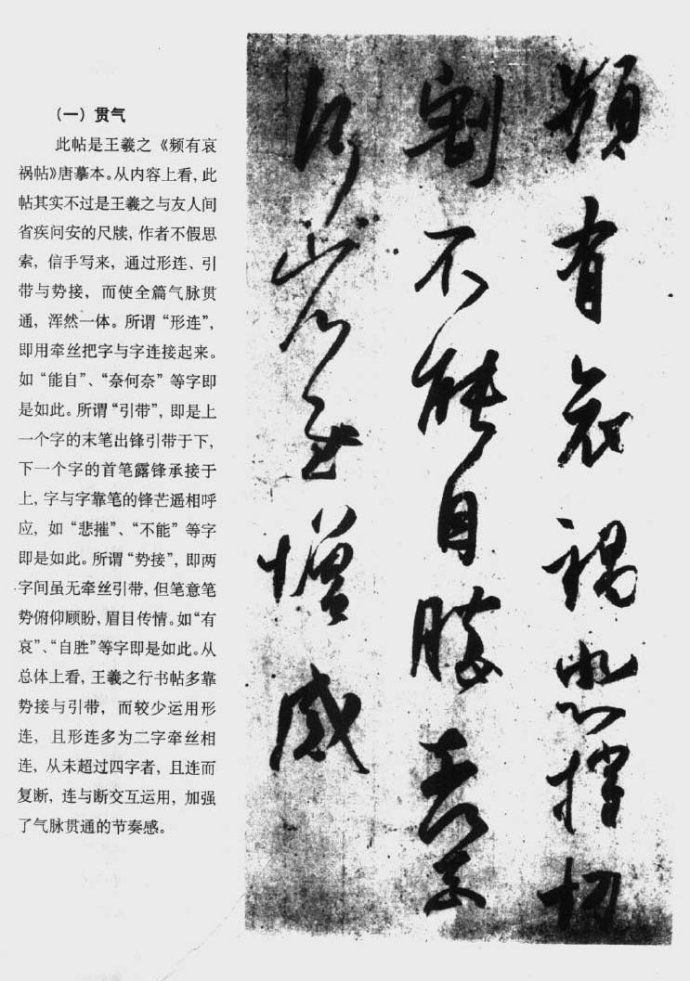 （一）贯气
此帖是王羲之《频有哀
祸帖》唐摹本。从内容上看，此
帖其实不过是王羲之与友人间
省疾问安的尺牍，作者不假思
索，信手写来，通过形连、引
带与势接，而使全篇气脉贯
通，浑然一体。所谓“形连”，
即用牵丝把字与字连接起来。
如“能自”、“奈何奈”等字即
是如此。所谓“引带”，即是上
一个字的末笔出锋引带于下，
下一个字的首笔露锋承接于
上，字与字靠笔的锋芒遥相呼
应，如“悲摧”、“不能”等字
即是如此。所谓“势接”，即两
字间虽无牵丝引带，但笔意笔
势俯仰顾盼，眉目传情。如“有
哀”、“自胜”等字即是如此。从
总体上看，王羲之行书帖多靠
势接与引带，而较少运用形
连，且形连多为二字牵丝相
连，从未超过四字者，且连而
复断，连与断交互运用，加强
了气脉贯通的节奏感。
頻有哀禍悲摧切
割不能自勝奈何奈
何省慰增感